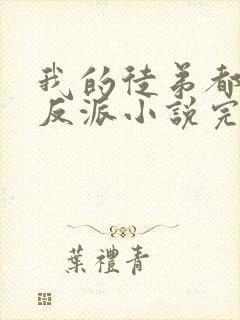 我的徒弟都
反派小說完
葉禮青